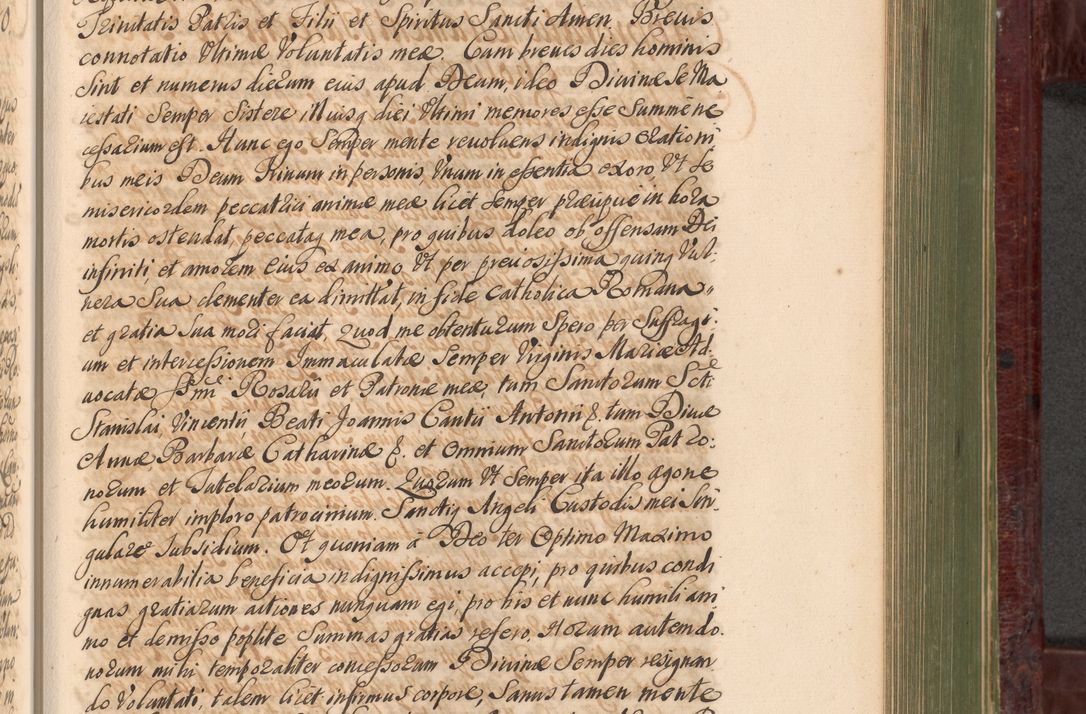 Trinitatis Patris et Filii et Spiritus Sancti Amen. Brevis
connotatio Ultimæ Voluntatis meæ. Cum breves dies hominis
Sint et numerus dierum eius apud Deum, ideo Divinæ Se Ma
iestati Semper Sistere illiusq diei Ultimi memores esse Summe ne
cessarium est. Hunc ego Semper mente revolvens indignis orationi
bus meis Deum Trinum in personis, Unum in essentia exoro, Ut Se
misericordem peccatrici animæ meæ licet Semper præcipue in hora
mortis ostendat, peccataq mea, pro quibus doleo ob offensam Dei
infiniti, et amorem Eius ex animo, Ut per preciosissima quinq Vul:
nera Sua clementer ea dimittat, in fide Catholica Romana
et gratia Sua mori faciat, Quod me obtenturum Spero per Suffragi:
um et intercessionem Immaculatæ Semper Virginis Mariæ Ad:
vocatæ SSmi Rosarii et Patronæ meæ, tum Sanctorum Scti
Stanislai, Vincentii, Beati Joannis Cantii Antonii &, tum Divæ
Annæ Barbaræ Catharinæ &. et Omnium Sanctorum Patro:
norum et Tutelarium meorum. Quorum Ut Semper ita illo agone
humiliter imploro patrocinium. Sanctiq Angeli Custodis mei Sin:
gulare Subsidium. Et quoniam à Deo ter Optimo Maximo
innumerabilia beneficia indignissimus accepi, pro quibus condi
gnas gratiarum actiones nunquam egi, pro his et nunc humili ani
mo et demisso poplite Summas gratias refero, Horum autem do:
norum mihi temporaliter concessorum Divinæ Semper resignan
do Voluntati, talem licet infirmus corpore, Sanus tamen mente